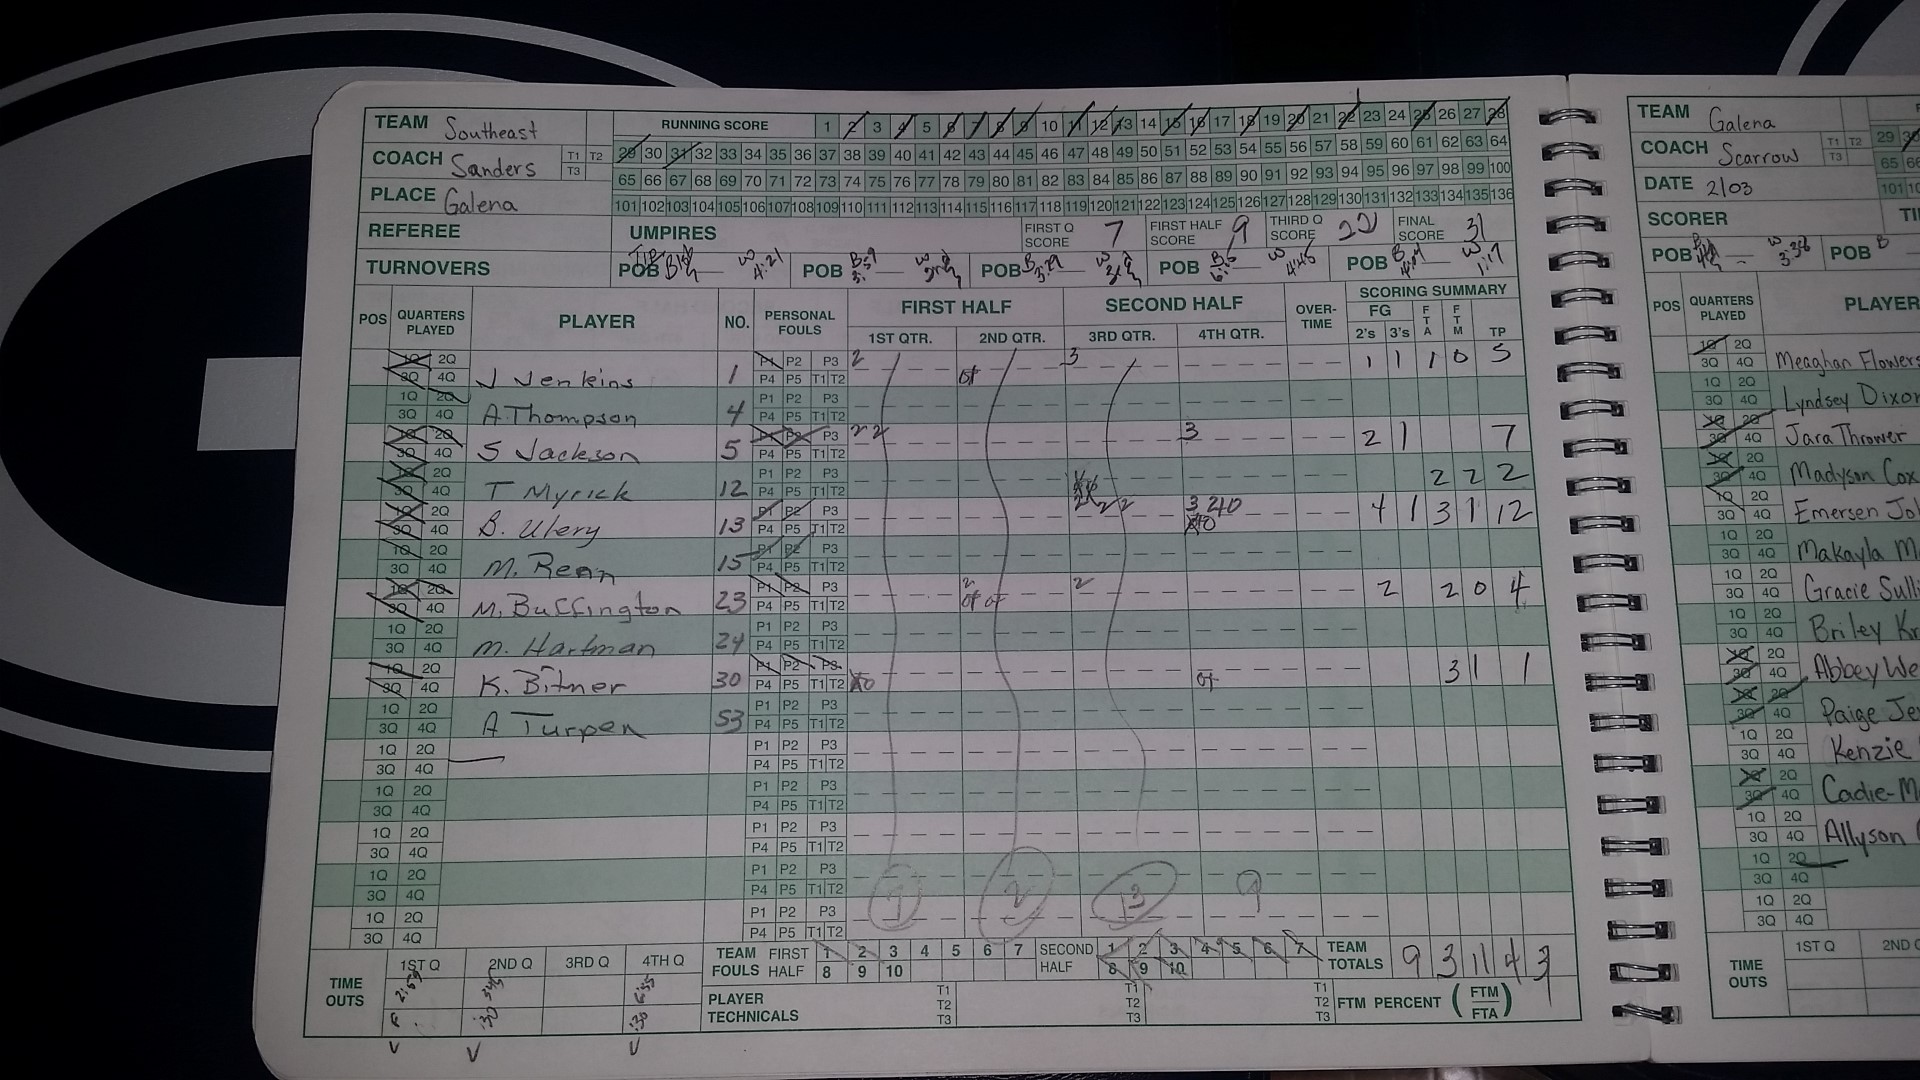 TEAM Southeast
RUNNING SCORE 1 2 3 4 5 6 7 8 9 10 11 12 13 14 15 16 17 18 19 20 21 22 23 24 25 26 27 28
COACH Sanders T1 T2 T3
29 30 31 32 33 34 35 36 37 38 39 40 41 42 43 44 45 46 47 48 49 50 51 52 53 54 55 56 57 58 59 60 61 62 63 64
65 66 67 68 69 70 71 72 73 74 75 76 77 78 79 80 81 82 83 84 85 86 87 88 89 90 91 92 93 94 95 96 97 98 99 100
PLACE Galena
101 102 103 104 105 106 107 108 109 110 111 112 113 114 115 116 117 118 119 120 121 122 123 124 125 126 127 128 129 130 131 132 133 134 135 136
REFEREE UMPIRES FIRST Q SCORE 7 FIRST HALF SCORE 9 THIRD Q SCORE 22 FINAL SCORE 31
TURNOVERS POB W 4:21 POB POB POB W 4:45 POB W 1:17
POS QUARTERS PLAYED PLAYER NO. PERSONAL FOULS FIRST HALF SECOND HALF OVER-TIME SCORING SUMMARY
1ST QTR. 2ND QTR. 3RD QTR. 4TH QTR. FG 2's 3's FTA FTM TP
1Q 2Q P1 P2 P3 2 3 1 1 1 0 5
3Q 4Q J Jenkins 1 P4 P5 T1 T2
1Q 2Q P1 P2 P3
3Q 4Q A. Thompson 4 P4 P5 T1 T2
1Q 2Q P1 P2 P3 2 2 3 2 1 7
3Q 4Q S Jackson 5 P4 P5 T1 T2
1Q 2Q P1 P2 P3 2 2 2
3Q 4Q T Myrick 12 P4 P5 T1 T2
1Q 2Q P1 P2 P3 2 2 3 4 1 3 1 12
3Q 4Q B. Ulery 13 P4 P5 T1 T2
1Q 2Q P1 P2 P3
3Q 4Q M. Renn 15 P4 P5 T1 T2
1Q 2Q P1 P2 P3 2 2 2 2 0 4
3Q 4Q M. Buffington 23 P4 P5 T1 T2
1Q 2Q P1 P2 P3
3Q 4Q M. Hartman 24 P4 P5 T1 T2
1Q 2Q P1 P2 P3 3 1 1
3Q 4Q K. Bitner 30 P4 P5 T1 T2
1Q 2Q P1 P2 P3
3Q 4Q A Turpen 53 P4 P5 T1 T2
1Q 2Q P1 P2 P3
3Q 4Q P4 P5 T1 T2
1Q 2Q P1 P2 P3
3Q 4Q P4 P5 T1 T2
1Q 2Q P1 P2 P3
3Q 4Q P4 P5 T1 T2
1Q 2Q P1 P2 P3
3Q 4Q P4 P5 T1 T2 7 2 13 9
1Q 2Q P1 P2 P3
3Q 4Q P4 P5 T1 T2
TIME OUTS 1ST Q 2ND Q 3RD Q 4TH Q
TEAM FOULS FIRST HALF 1 2 3 4 5 6 7 8 9 10 SECOND HALF 1 2 3 4 5 6 7 8 9 10 TEAM TOTALS 9 3 11 4 3
PLAYER TECHNICALS T1 T2 T3 T1 T2 T3 T1 T2 T3 FTM PERCENT (FTM FTA)
V V V
TEAM Galena
29
COACH Scarrow T1 T2 T3
65 66
DATE 2/03
101
SCORER
POB W 3:36 POB B
POS QUARTERS PLAYED PLAYER
1Q 2Q 3Q 4Q Meaghan Flowers
1Q 2Q 3Q 4Q Lyndsey Dixon
1Q 2Q 3Q 4Q Jara Thrower
1Q 2Q 3Q 4Q Madyson Cox
1Q 2Q 3Q 4Q Emersen
1Q 2Q 3Q 4Q Makayla
1Q 2Q 3Q 4Q Gracie
1Q 2Q 3Q 4Q Briley
1Q 2Q 3Q 4Q Abbey
1Q 2Q 3Q 4Q Paige
1Q 2Q 3Q 4Q Kenzie
1Q 2Q 3Q 4Q
1Q 2Q 3Q 4Q Allyson
1Q 2Q 3Q 4Q
1Q 2Q 3Q 4Q
TIME OUTS 1ST Q